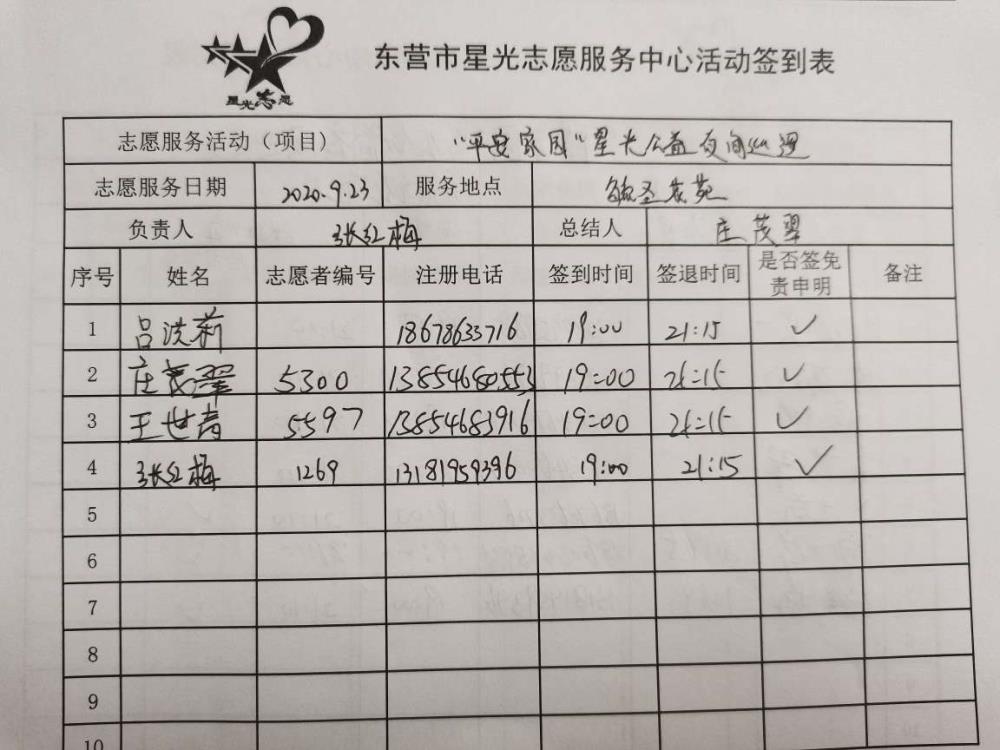 星光志愿
东营市星光志愿服务中心活动签到表
志愿服务活动（项目） "平安家园"星光公益夜间巡逻
志愿服务日期 2020.9.23 服务地点 毓圣花苑
负责人 张红梅 总结人 庄茂翠
序号 姓名 志愿者编号 注册电话 签到时间 签退时间 是否签免责申明 备注
1 吕洪莉 18678633716 19:00 21:15 ✓
2 庄茂翠 5300 13854680553 19:00 21:15 ✓
3 王世青 5597 13854683916 19:00 21:15 ✓
4 张红梅 1269 13181959396 19:00 21:15 ✓
5
6
7
8
9
10